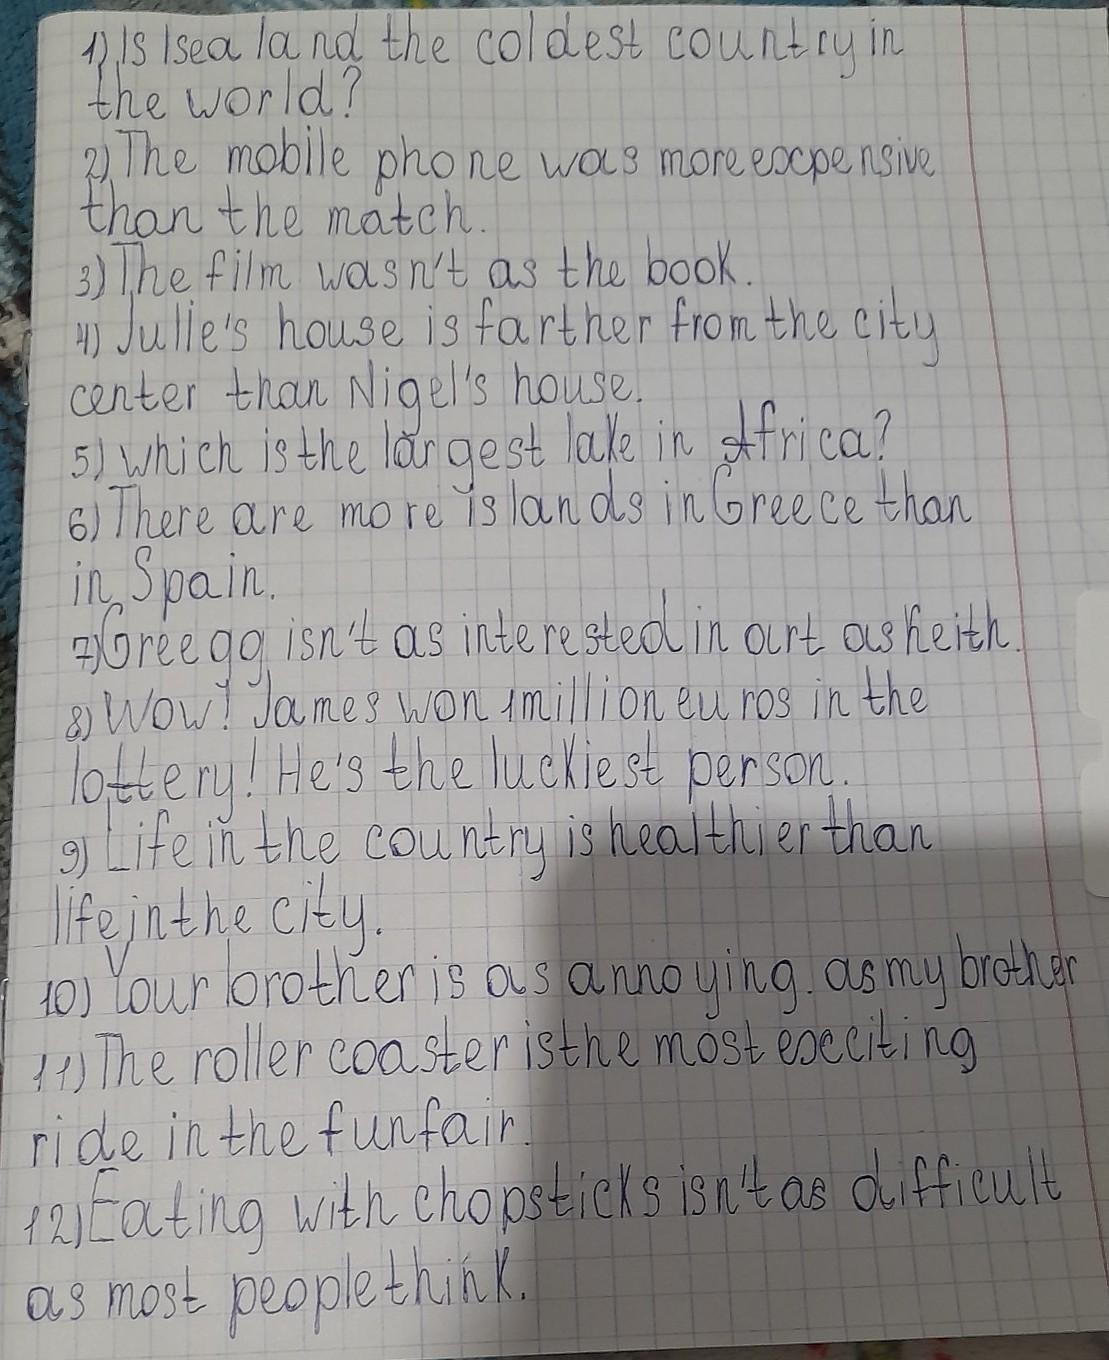 1) Is Isealand the coldest country in
the world?
2) The mobile phone was more expensive
than the match.
3) The film wasn't as the book.
4) Julie's house is farther from the city
center than Nigel's house.
5) Which is the largest lake in Africa?
6) There are more islands in Greece than
in Spain.
7) Greegg isn't as interested in art as Keith.
8) Wow! James won 1 million euros in the
lottery! He's the luckiest person.
9) Life in the country is healthier than
life in the city.
10) Your brother is as annoying. as my brother
11) The roller coaster is the most exciting
ride in the funfair.
12) Eating with chopsticks isn't as difficult
as most people think.